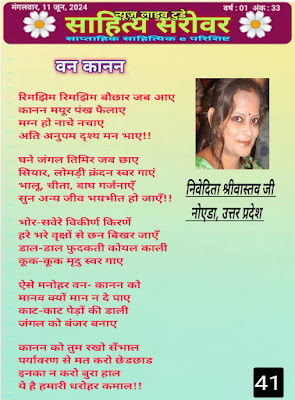 मंगलवार, 11 जून, 2024
न्यूज लाइव टुडे
वर्ष : 01 अंक : 33
साहित्य सरोवर
साप्ताहिक साहित्यिक e परिशिष्ट
वन कानन
रिमझिम रिमझिम बौछार जब आए
कानन मयूर पंख फैलाए
मग्न हो नाचे नचाए
अति अनुपम दृश्य मन भाए!!
घने जंगल तिमिर जब छाए
सियार, लोमड़ी क्रंदन स्वर गाएं
भालू, चीता, बाघ गर्जनाएँ
सुन अन्य जीव भयभीत हो जाएँ!!
भोर-सवेरे विकीर्ण किरणें
हरे भरे वृक्षों से छन बिखर जाएँ
डाल-डाल फुदकती कोयल काली
कूक-कूक मृदु स्वर गाए
ऐसे मनोहर वन- कानन को
मानव क्यों मान न दे पाए
काट-काट पेड़ों की डाली
जंगल को बंजर बनाए
कानन को तुम रखो सँभाल
पर्यावरण से मत करो छेडछाड
इनका न करो बुरा हाल
ये है हमारी धरोहर कमाल!!
निवेदिता श्रीवास्तव जी
नोएडा, उत्तर प्रदेश
41